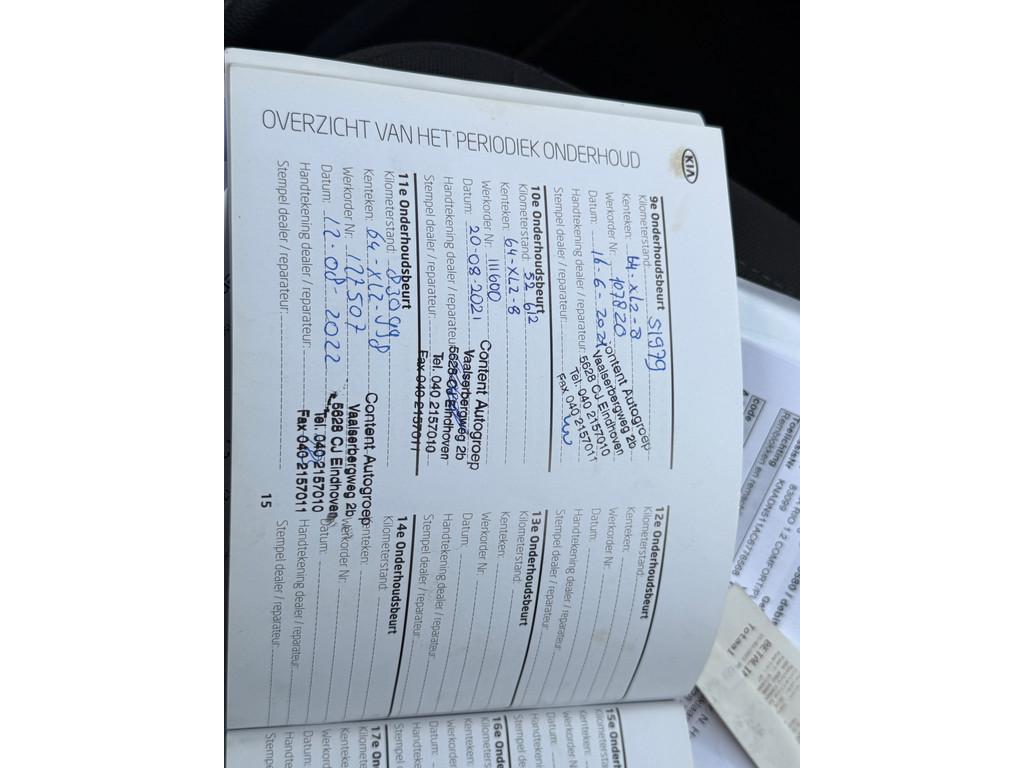 KIA
OVERZICHT VAN HET PERIODIEK ONDERHOUD
9e Onderhoudsbeurt
Kilometerstand: 51979
Kenteken: 64-XLZ-8
Werkorder Nr: 107820
Datum: 16-6-2021
Handtekening dealer / reparateur:
Stempel dealer / reparateur:
Content Autogroep
Vaalserbergweg 2b
5628 CJ Eindhoven
Tel. 040 2157010
Fax 040 2157011
10e Onderhoudsbeurt
Kilometerstand: 52 612
Kenteken: 64-XLZ-8
Werkorder Nr: 111600
Datum: 20-08-2021
Handtekening dealer / reparateur:
Stempel dealer / reparateur:
Content Autogroep
Vaalserbergweg 2b
5628 CJ Eindhoven
Tel. 040 2157010
Fax 040 2157011
11e Onderhoudsbeurt
Kilometerstand: 83099
Kenteken: 64-XLZ-8
Werkorder Nr: 127507
Datum: 12-08-2022
Handtekening dealer / reparateur:
Stempel dealer / reparateur:
Content Autogroep
Vaalserbergweg 2b
5628 CJ Eindhoven
Tel. 040 2157010
Fax 040 2157011
15
12e Onderhoudsbeurt
Kilometerstand:
Kenteken:
Werkorder Nr:
Datum:
Handtekening dealer / reparateur:
Stempel dealer / reparateur:
13e Onderhoudsbeurt
Kilometerstand:
Kenteken:
Werkorder Nr:
Datum:
Handtekening dealer / reparateur:
Stempel dealer / reparateur:
14e Onderhoudsbeurt
Kilometerstand:
Kenteken:
Werkorder Nr:
Datum:
Handtekening dealer / reparateur:
Stempel dealer / reparateur:
15e Onderh
Kilometers
Kenteken:
Werkorder
Datum:
Handteken
Stempel de
16e Onde
Kilometers
Kenteken:
Werkorder
Datum:
Handteke
Stempel
17e Ond
Kilomete
Kenteke
Werkord
Datum:
Handte
Stempe
83099
RIO 1.2 COMFORT
Totaal